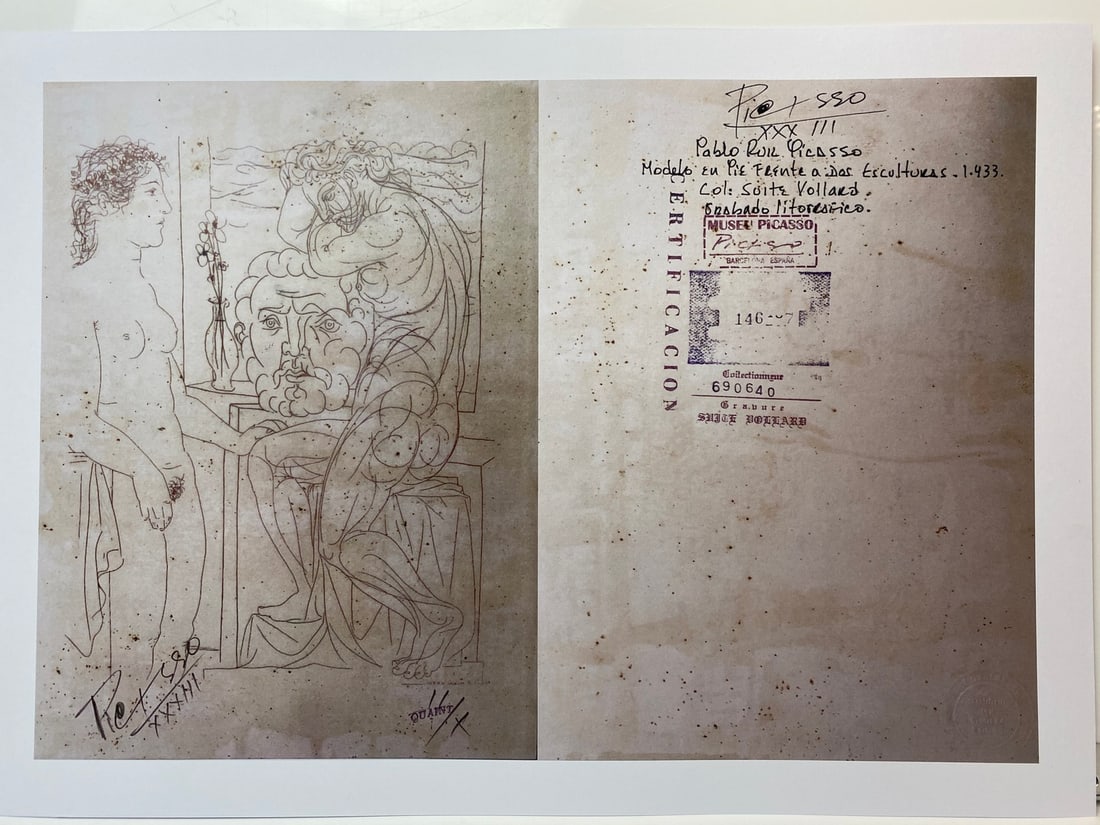 Picasso
XXXIII
QUAINT
X
Picasso
XXX III
Pablo Ruiz Picasso
Modelo en Pie Frente a Dos Esculturas - 1.933.
Col: Suite Vollard.
Grabado litografico.
CERTIFICACION
MUSEU PICASSO
Picasso
BARCELONA ESPAÑA
146
7
Collectionngue
690640
Gravure
SUITE VOLLARD